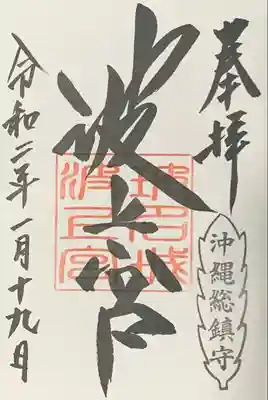 奉拝
沖縄総鎮守
波上宮
波上宮
令和二年一月十九日